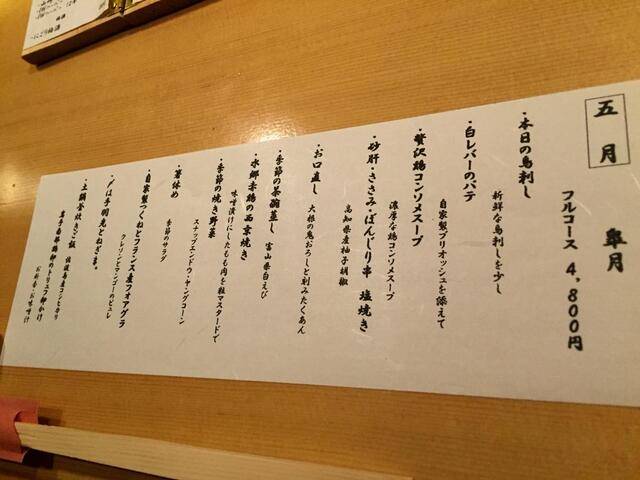 五月
皐月
フルコース 4,800円
・本日の鳥刺し
新鮮な鳥刺しを少し
・白レバーのパテ
自家製ブリオッシュを添えて
・贅沢鶏コンソメスープ
濃厚な鶏コンソメスープ
・砂肝・ささみ・ぼんじり串 塩焼き
高知県産柚子胡椒
・お口直し
大根の鬼おろしと刻みたくあん
・季節の茶碗蒸し 富山県白えび
・水郷赤鶏の西京焼き
味噌漬けにしたもも肉を粒マスタードで
・季節の焼き野菜
スナップエンドウ・ヤングコーン
・箸休め
季節のサラダ
・自家製つくねとフランス産フォアグラ
クレソンとマンゴーのピュレ
・〆は手羽先とねぎま。
・土鍋釜炊きご飯 佐渡島産コシヒカリ
お新香・お味噌汁